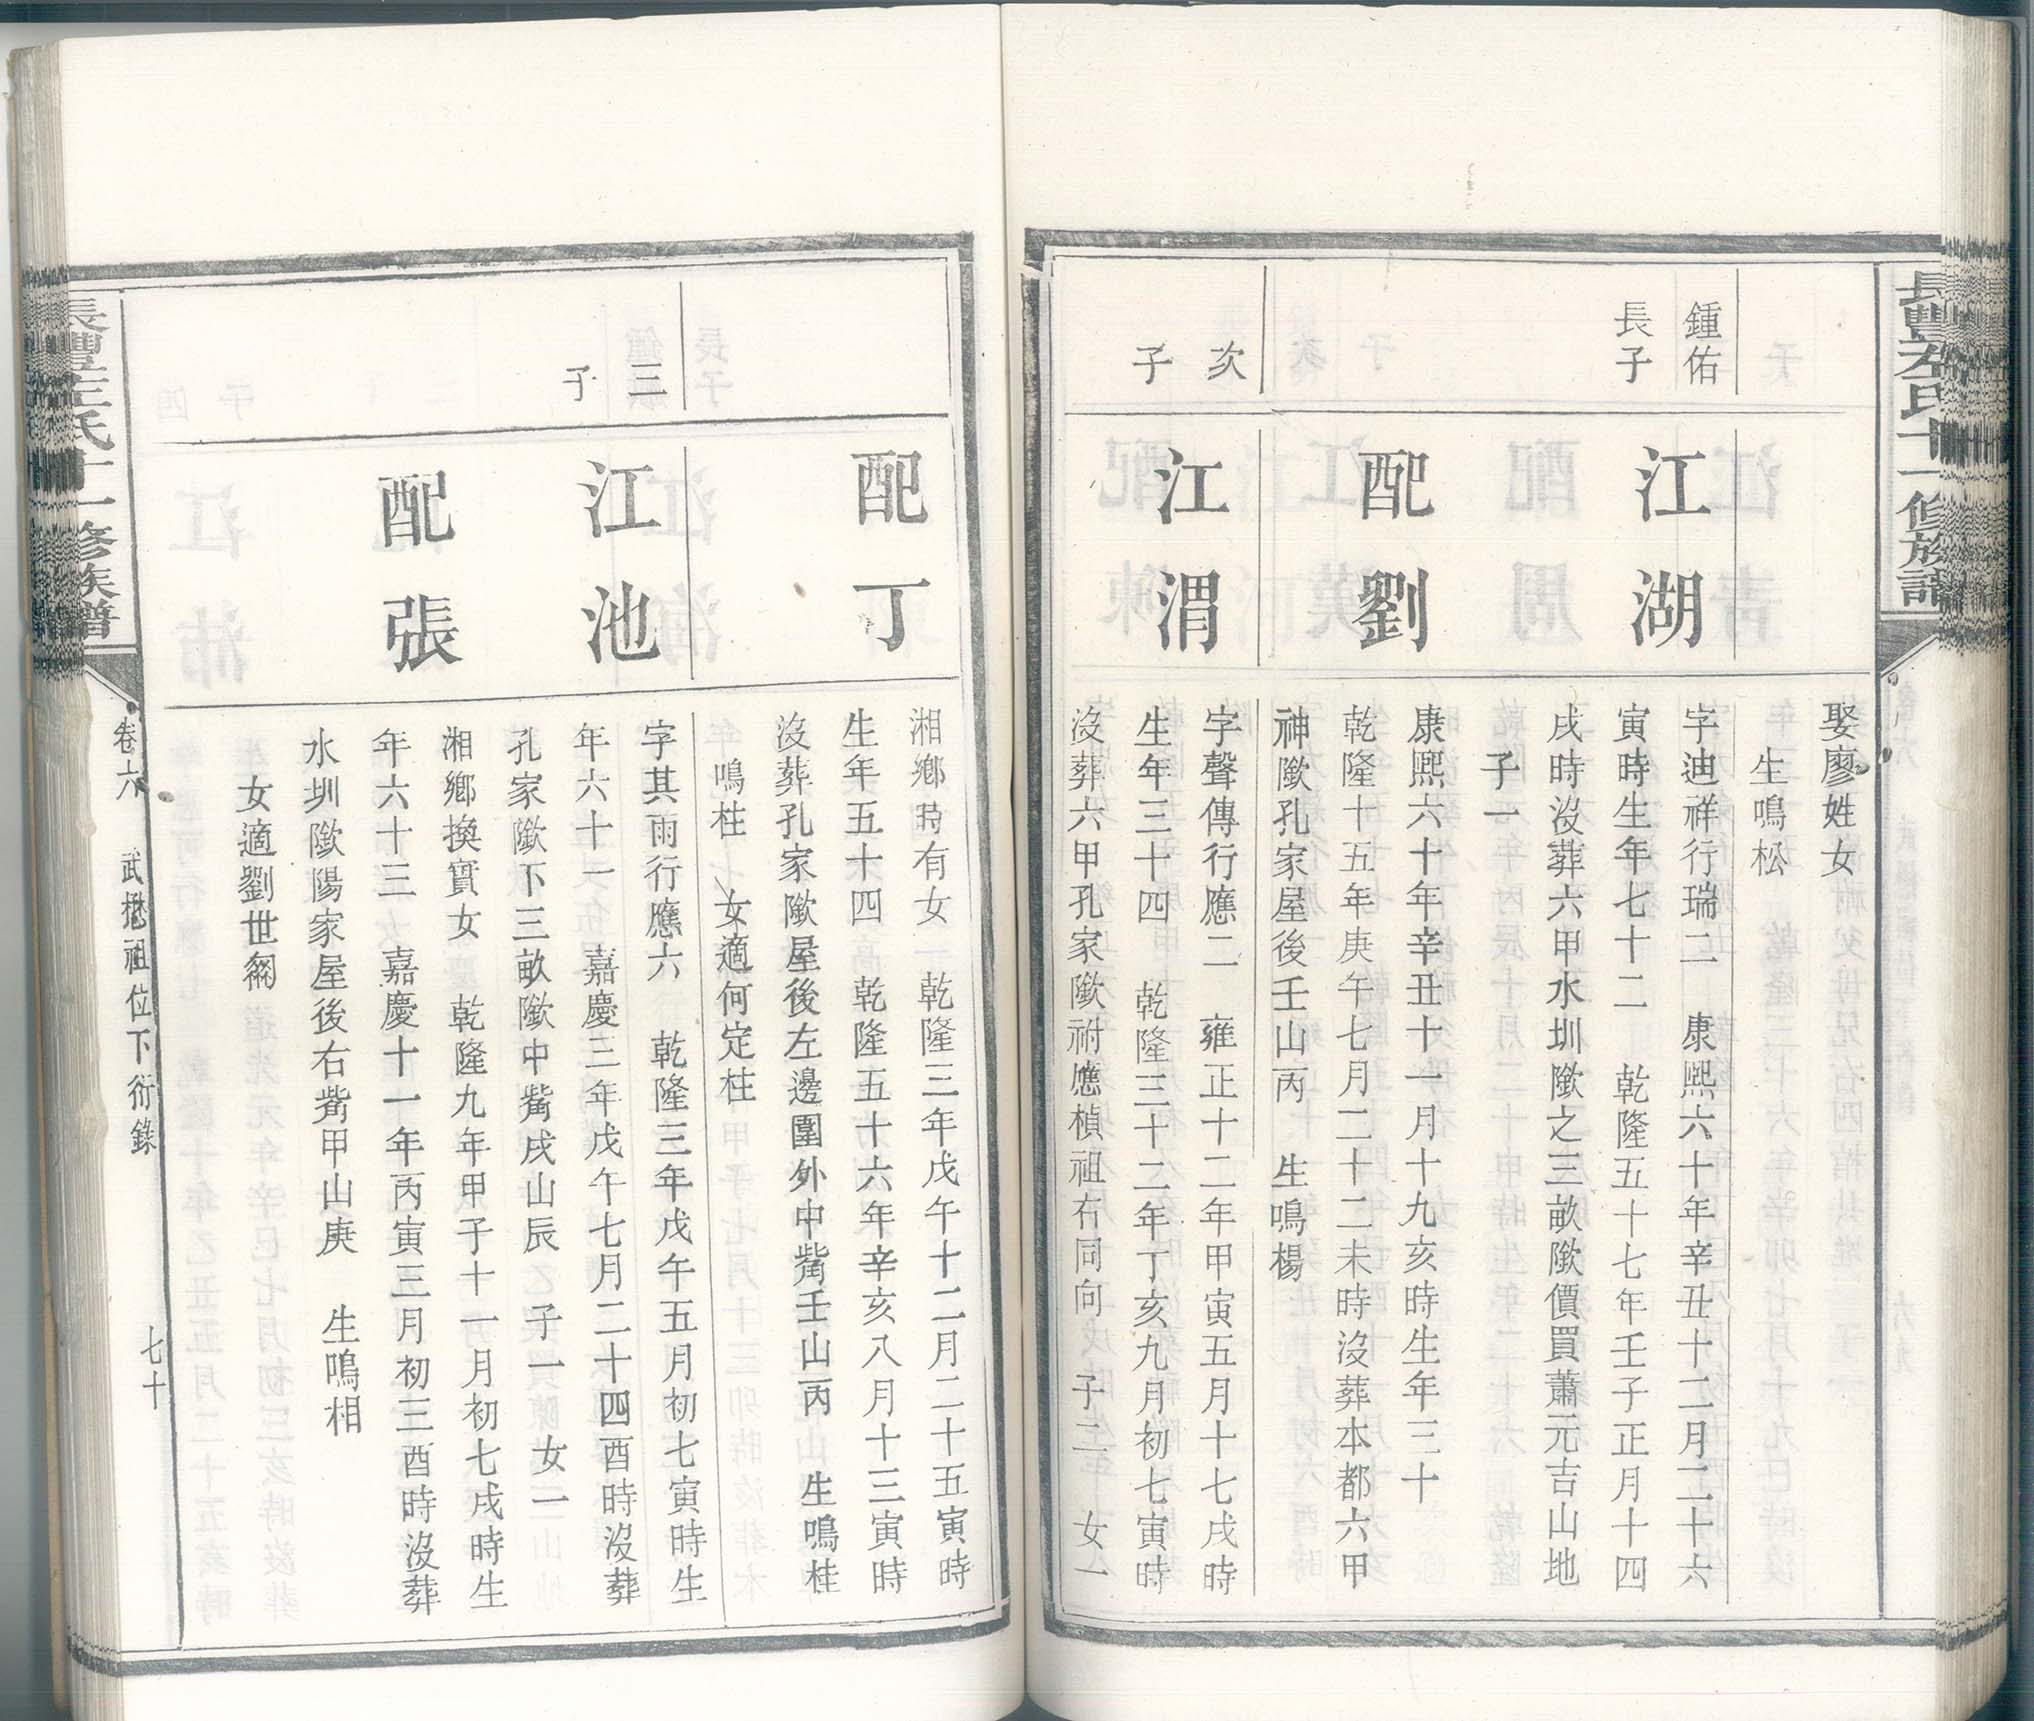 長豐左氏十一修族譜
娶廖姓女
生鳴松
鍾佑
長子
江湖
字迪祥行瑞二 康熙六十年辛丑十二月二十六
寅時生年七十二 乾隆五十七年壬子正月十四
戌時沒葬六甲水圳隞之三畝隞價買蕭元吉山地
子一
配劉
康熙六十年辛丑十一月十九亥時生年三十
乾隆十五年庚午七月二十二未時沒葬本都六甲
神隞孔家屋後壬山丙 生鳴楊
次
子
江渭
字聲傳行應二 雍正十二年甲寅五月十七戌時
生年三十四 乾隆三十二年丁亥九月初七寅時
沒葬六甲孔家隞祔應楨祖右同向 子二 女一
配丁
湘鄉時有女 乾隆三年戊午十二月二十五寅時
生年五十四 乾隆五十六年辛亥八月十三寅時
沒葬孔家隞屋後左邊圍外中觜壬山丙 生鳴桂
鳴柱 女適何定柱
三
子
江池
字其雨行應六 乾隆三年戊午五月初七寅時生
年六十一 嘉慶三年戊午七月二十四酉時沒葬
孔家隞下三畝隞中觜戌山辰 子一 女一
配張
湘鄉換賓女 乾隆九年甲子十一月初七戌時生
年六十三 嘉慶十一年丙寅三月初三酉時沒葬
水圳隞陽家屋後右觜甲山庚 生鳴相
女適劉世
長豐左氏十一修族譜
卷六 武懋祖位下衍錄 七十